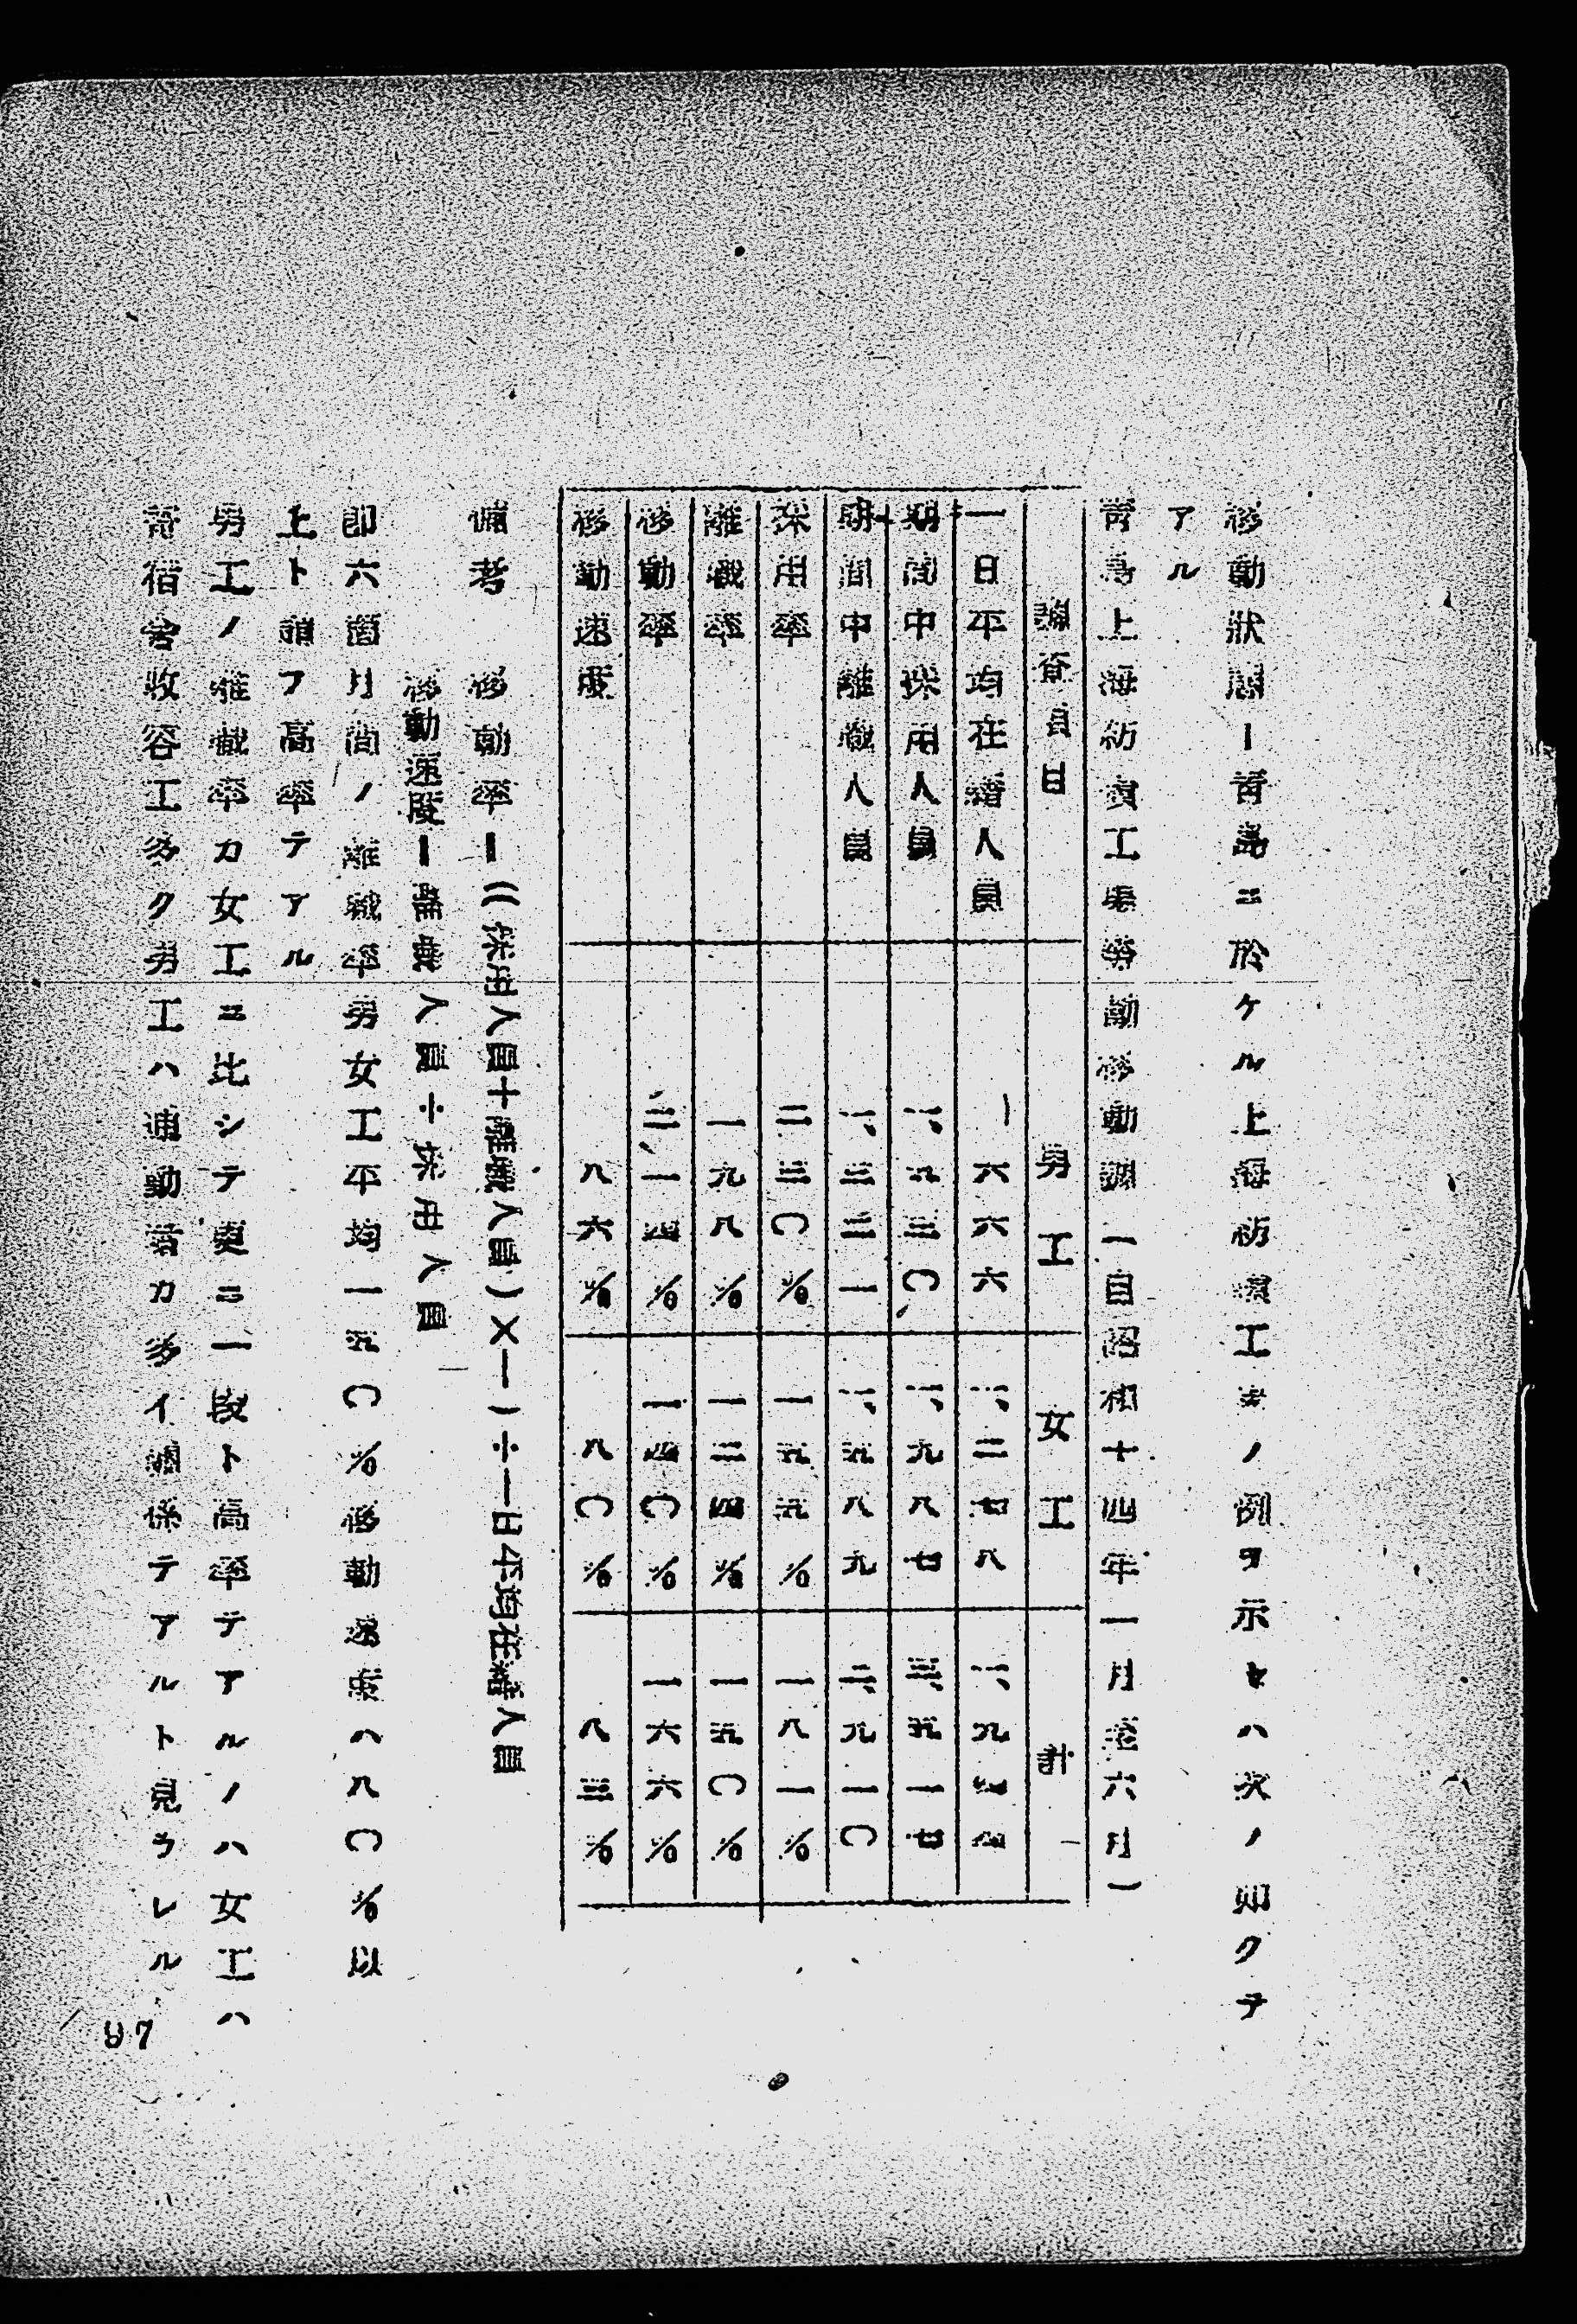 移動狀態ー青島ニ於ケル上海紡績工場ノ例ヲ示セハ次ノ如クテ
アル
青島上海紡績工場労働移動調(自昭和十四年一月至六月)
調査項目 男工 女工 計
一日平均在籍人員 六六六 一、二七八 一、九四四
期間中採用人員 一、五三〇 一、九八七 三、五一七
期間中離職人員 一、三二一 一、五八九 二、九一〇
採用率 二三〇% 一五五% 一八一%
離職率 一九八% 一二四% 一五〇%
移動率 二一四% 一四〇% 一六六%
移動速度 八六% 八〇% 八三%
備考 移動率=((採用人員+離職人員)×½)÷一日平均在籍人員
移動速度=離職人員÷採用人員
即六箇月間ノ離職率男女工平均一五〇%移動速度ハ八〇%以
上ト謂フ高率テアル
男工ノ離職率カ女工ニ比シテ更ニ一段ト高率デアルノハ女工ハ
寄宿舎收容工多ク男工ハ通勤者カ多イ關係テアルト見ラレル
97